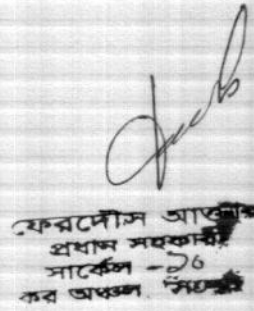 ফেরদৌস আক্তার
প্রধান সহকারী
সার্কেল -১০
কর অঞ্চল